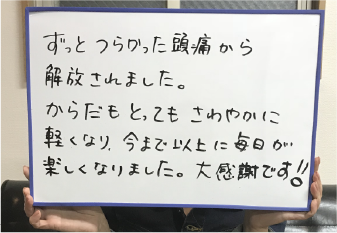 ずっとつらかった頭痛から
解放されました。
からだもとってもさわやかに
軽くなり、今まで以上に毎日が
楽しくなりました。大感謝です!!